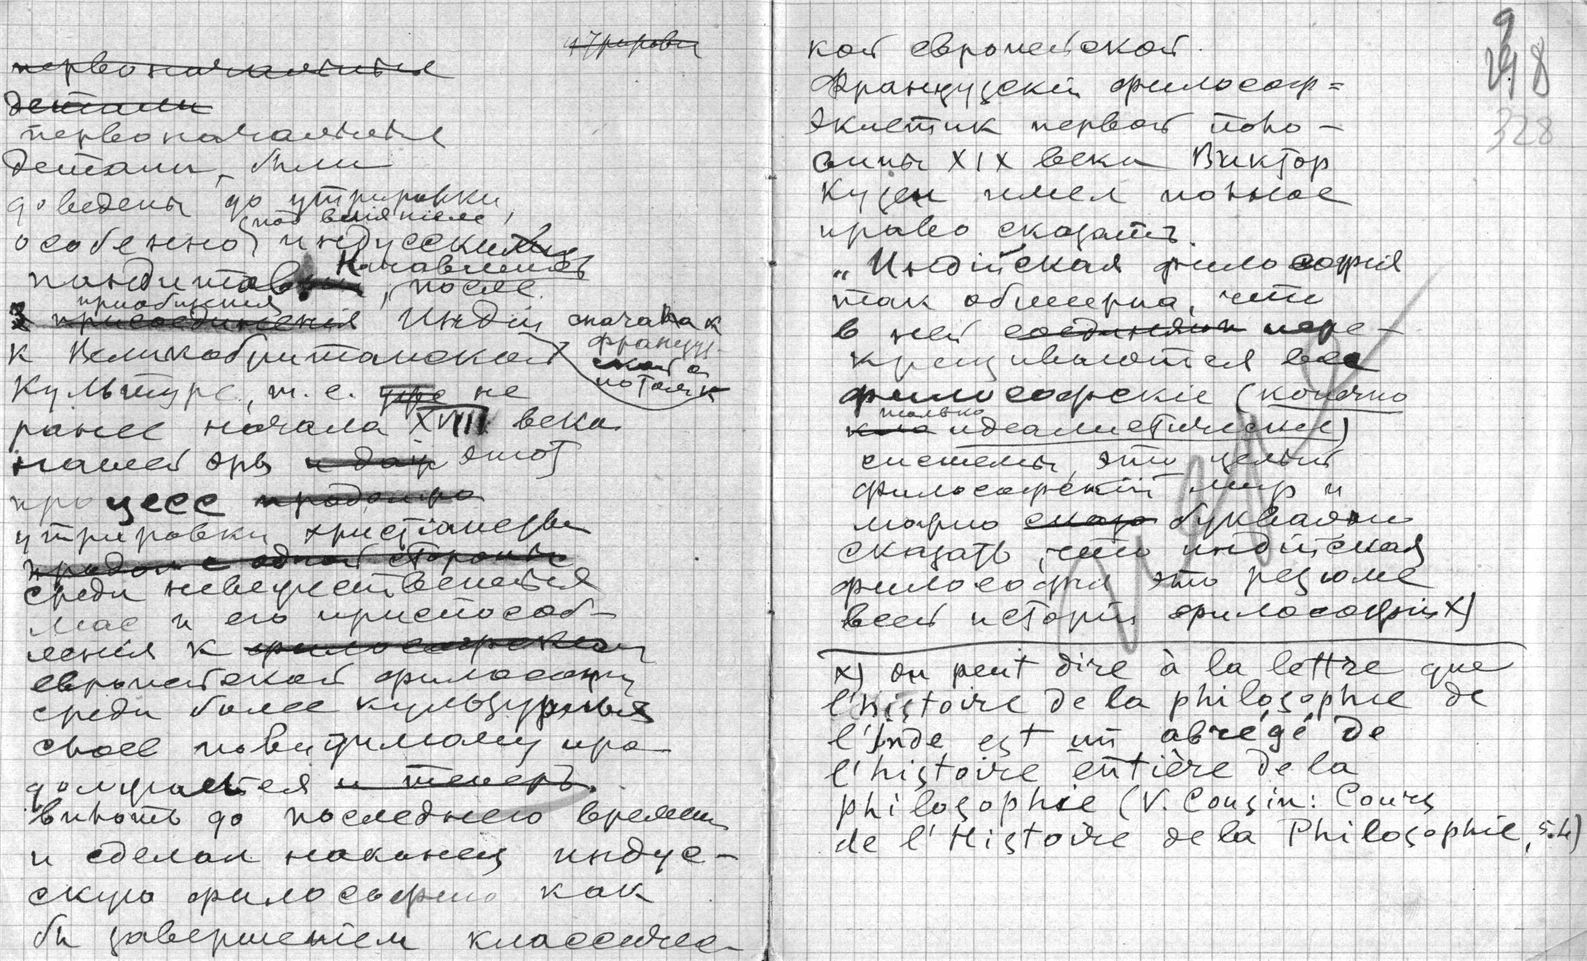 первоначальныя
детали
первоначальныя
детали, были
доведены до утрировки,
под вліяніем
особенно индусских
пандитов
Начавшись, после
приобщенія
присоединенія Индіи сначала к
француз-
ской а
потом к
к Великобританской
культуре, т. е. не
ранее начала XVIII века
нашей эры этот
процесс
утрировки христіанства
среди невежественных
масс и его приспособ-
ленія к
европейской философіи
среди более культурных
слоев повидимому про-
должается и теперь.
вплоть до последнего времени
и сделал наконец индус-
скую философію как
бы завершеніем классичес-
9
248
328
кой европейской.
Французскій философ-
эклетик первой поло-
вины XIX века Виктор
Кузен имел полное
право сказать.
„Индійская философия
так обширна, что
в ней соединяются пере-
крещиваются все
философскіе (конечно
только
идеалистическіе)
системы, это целый
философскій мир и
можно буквально
сказать, что индійская
философия это резюме
всей исторіи философіи х)
х) on peut dire à la lettre que
l'histoire de la philosophie de
l'Inde est un abrégé de
l'histoire entière de la
philosophie (V. Cousin: Cours
de l'Histoire de la Philosophie, 5.4)